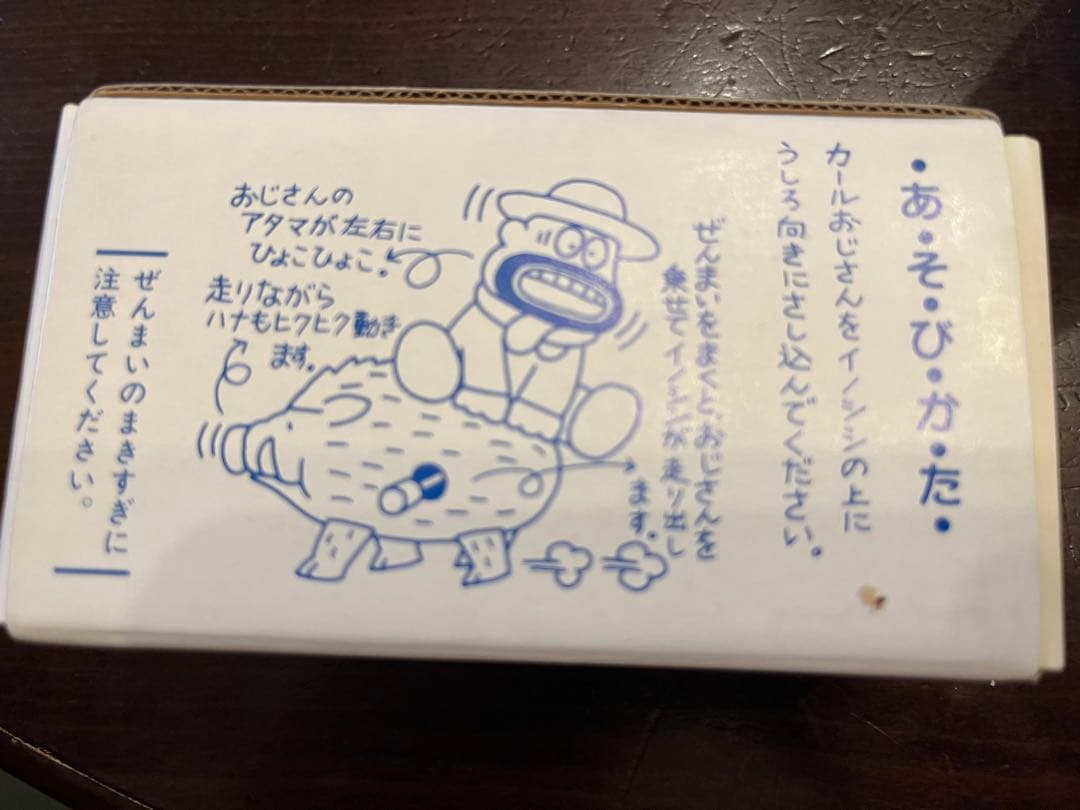 ・あ・そ・び・か・た・
カールおじさんをイノシシの上に
うしろ向きにさし込んでください。
ぜんまいをまくと、おじさんを
乗せてイノシシが走り出し
ます。
おじさんの
アタマが左右に
ひょこひょこ。
走りながら
ハナもヒクヒク動き
ます。
ぜんまいのまきすぎに
注意してください。